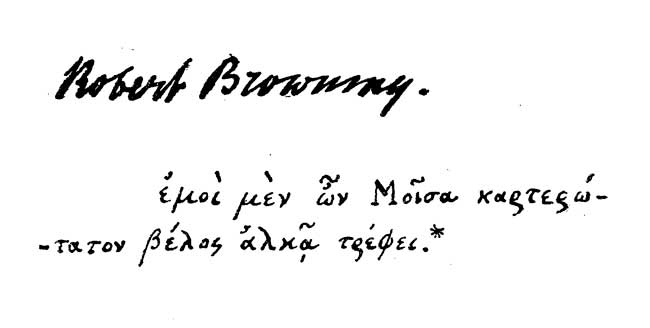 Robert Browning.
ἐμοὶ μὲν ὦν Μοῖσα καρτερώ-
-τατον βέλος ἀλκᾷ τρέφει.*